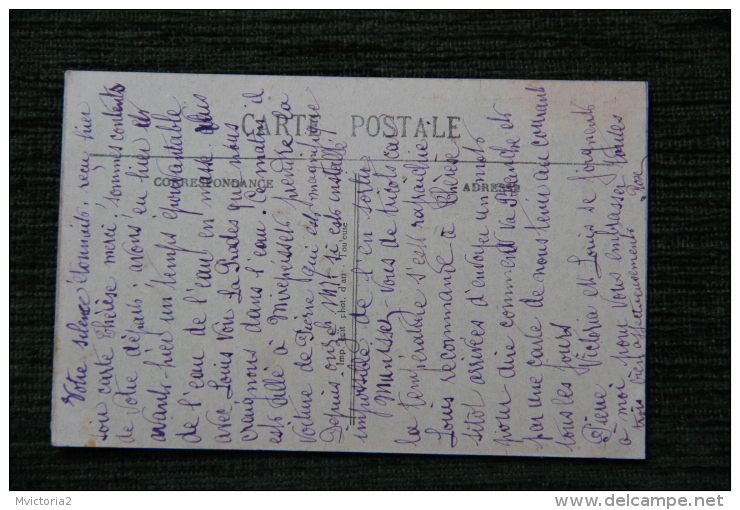 Votre silence étonnait. reçu hier
soir carte Thérèse merci, sommes contents
de votre départ; avons eu hier et
avant-hier un temps épouvantable
de l'eau de l'eau en masse. Suis
avec Louis voir La Prades que nous
craignons dans l'eau. Ce matin il
est allé à Mirepeisset prendre la
voiture de Pierre qui est magnifique
Depuis onze Mr si est installé
impossible de l'en sortir
Munissez-vous de tricots car
la température s'est rafraîchie
Louis recommande à Thérèse
sitôt arrivées d'envoyer un mot
pour dire comment va Blanche et
par une carte de nous tenir au courant
tous les jours
Pierre Victoria et Louis se joignent
à moi pour vous embrasser toutes
trois bien affectueusement
CARTE POSTALE
CORRESPONDANCE
ADRESSE
Imp. édit. phot. d'art - Toulouse
Mvictoria2
delcampe.net